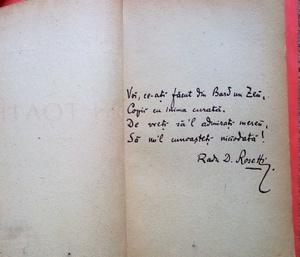 Voi, ce-ați făcut din Bard un Zeŭ,
Copii cu inima curată.
De vreți să'l admirați mereŭ,
Să nu'l cunoașteți niciodată!
Radu D. Rosetti